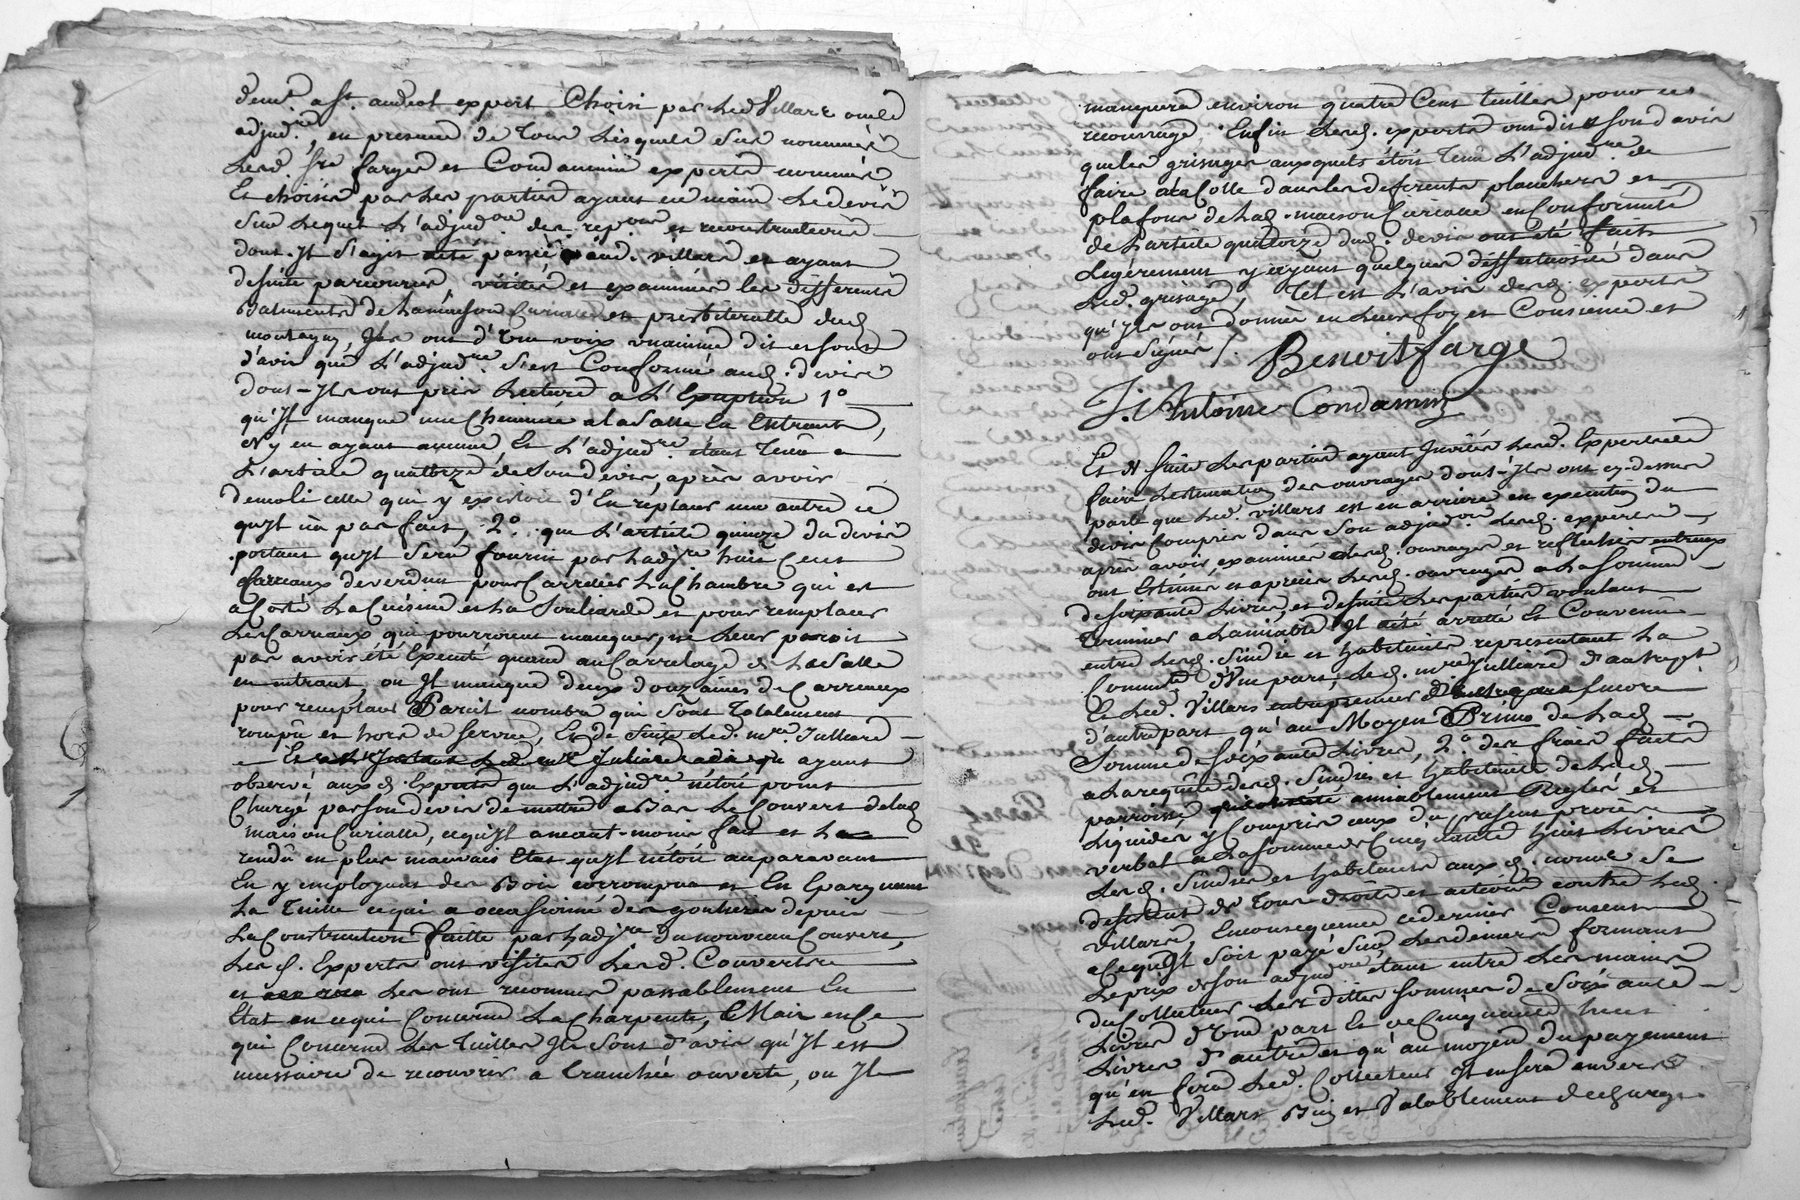 demt. a St. andeol expert Choisi par led Villars ou led
adjudre, en presence de tous lesquels sus nommés
lesd. Srs farge et Condamin experts nommés
Et choisis par les parties ayant en main le devis
sur lequel l'adjudon. des repons. et reconstructions
dont Jl s'agit été passée aud. villars et ayant
desuite parcourus, visités et examinés les differents
Batiments de la maison Curialle et presbiteralle dud
montagny, Jls ont d'une voix unanime dit et sont
d'avis que l'adjudre. s'est Conformé aud. devis
dont Jls ont pris lecture a l'Exeption 1°
qu'Jl manque une Cheminée a la Salle En Entrant,
n'y en ayant aucune, Et l'adjudre. étant tenu a
l'article quatorze de son devis, après avoir
demoli celle qui y existoit d'En replacer une autre ce
qu'Jl n'a pas fait, 2° que l'article quinze du devis
portant qu'Jl sera fourni par ladjre huit Cent
Carreaux de verdun pour Carreler la Chambre qui est
a Coté la Cuisine et la Souliarde et pour remplacer
les Carreaux qui pourroient manquer, ne leur paroit
pas avoir été Executé quand au Carrelage de la Salle
en entrant, ou Jl manque deux douzaines de Carreaux
pour remplacer Pareil nombre qui sont totalement
rompu et hors de service, Et de suite led. mre. Julliard
ayant
observé auxd. Experts que l'adjudre. n'étoit point
Chargé par son devis de mettre a Bas le Couvert de lad
maison Curialle, ce qu'Jl a neant-moins fait et la
rendû en plus mauvais Etat qu'Jl n'étoit auparavant
En y employant des Bois corrompus et En Epargnant
la tuille ce qui a occasionné des goutieres depuis
la Construction faitte par ladjre du nouveau Couvert,
lesd. Experts ont visités lesd. Couverts
et les ont reconnus passablement En
Etat en ce qui Concerne la Charpente, Mais en Ce
qui Concerne les tuilles Jls sont d'avis qu'Jl est
necessaire de recouvrir a tranchée ouverte, ou Jl
manquera environ quatre Cent tuilles pour ce
recouvrage. Enfin lesd. experts ont dit sont d'avis
que les grisages auxquels étoit tenu l'adjudre de
faire a la Colle dans les deferents planchers et
plafons de lad. maison Curialle en Conformité
de l'article quatorze dud. devis ont été faits
Legérement y ayant quelques deffectuosité dans
led. grisage, Tel est l'avis desd. experts
qu'Jls ont donnée en leurs foy et Consience et
ont signés /. Benoit farge
J. Antoine Condamin
Et de suite les parties ayant Jnvités lesd. Experts de
faire l'estimation des ouvrages dont Jls ont cy-dessus
parlé que led. villars est en arriere en execution du
devis Compris dans son adjudon. lesd. experts
après avoir examinés lesd. ouvrages et reflechis entreux
ont Estimés et apreciés lesd. ouvrages a la Somme
de soixante livres, et desuite les parties voulant
terminer a lamiable Jl a été arretté Et Convenu
entre lesd. Sindic et habitants representant la
Commté d'Une part, led. mre Julliard d'autrepart
Et led. Villars entrepreneur encore
d'autrepart qu'au Moyen Primo de lad
Somme de soixante livres, 2° des frais faits
a la requête desd. Sindics et habitants de lad
parroisse amiablement Reglés et
Liquidés y Compris ceux du present procès
verbal a la somme de Cinquante huit livres
lesd. Sindics et habitants auxd. noms se
desistent de tous droits et actions contre led
Villars, Enconsequence ce dernier Consent
a cequ'Jl soit payé sur les deniers formant
le prix de son adjudon étant entre les mains
du Collecteur lesdittes sommes de soixante
livres d'Une part Et de Cinquante huit
livres d'autre et qu'au moyen du payement
qu'en fera led. Collecteur Jl en sera envers
led. Villars Bien et Valablement dechargé